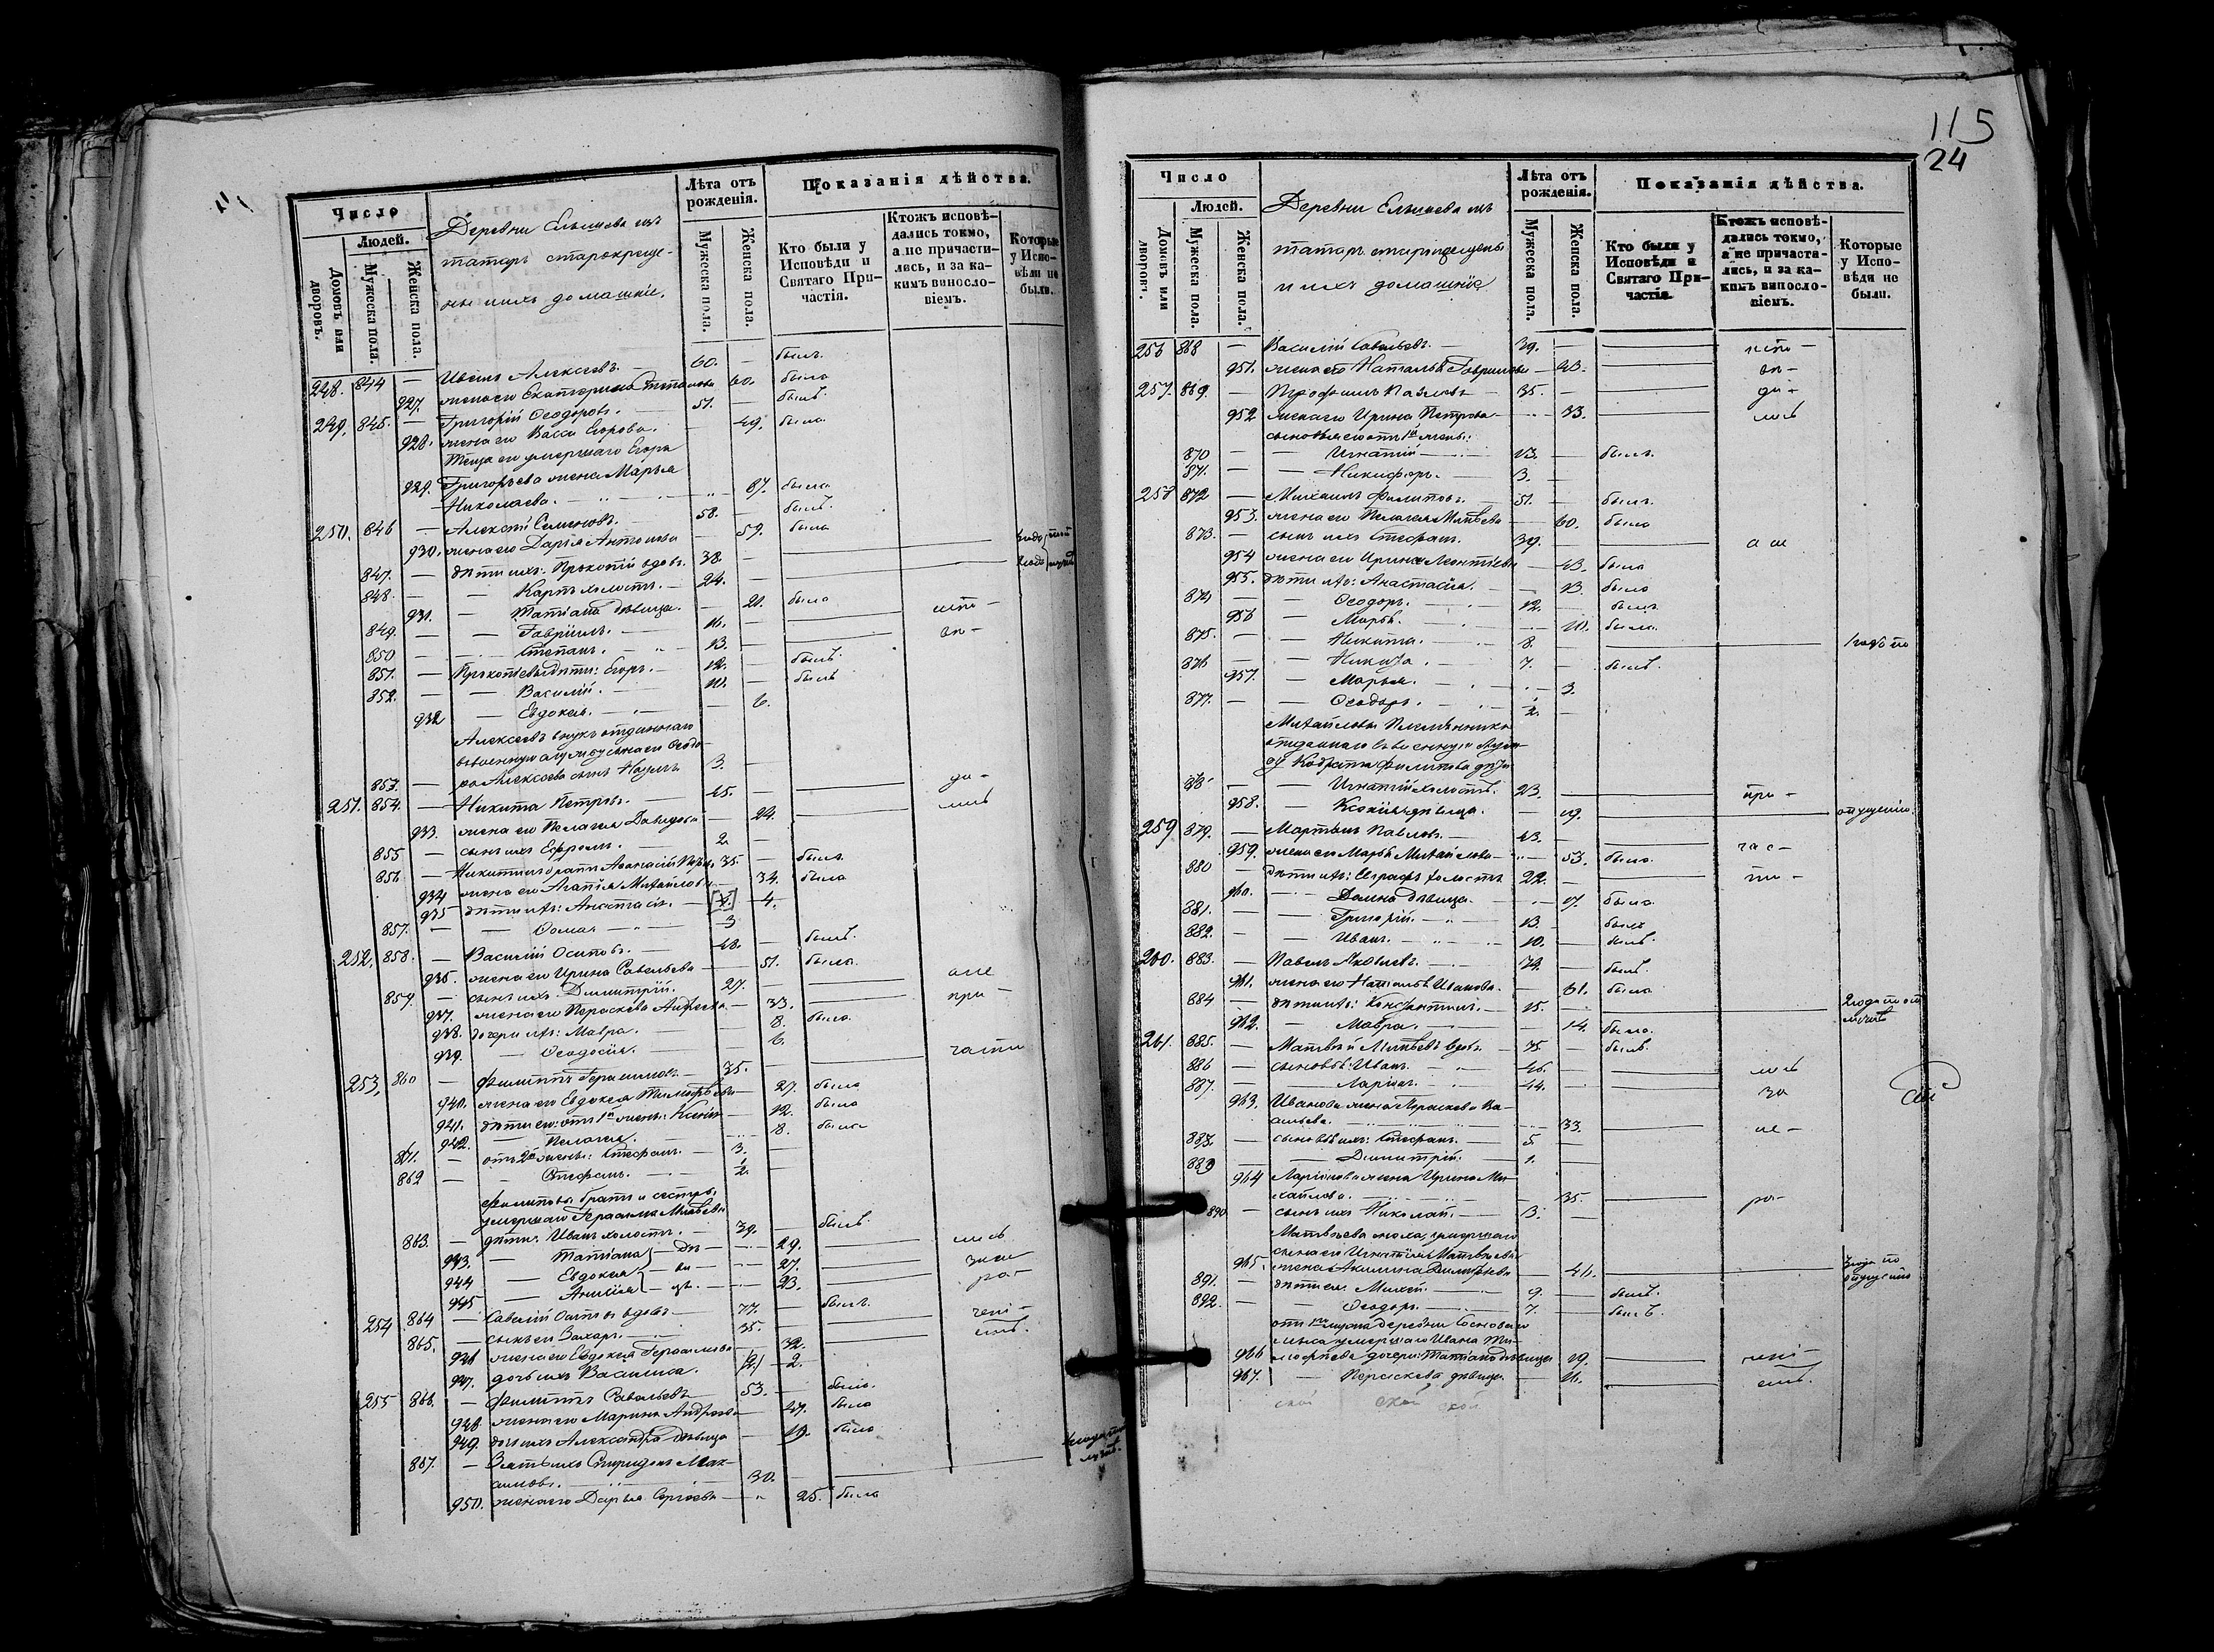 Число
Людей.
Домовъ или дворовъ.
Мужеска пола.
Женска пола.
Деревни Елышева изъ
татаръ старокреще-
ны и ихъ домашніе.
Лѣта отъ рожденія.
Мужеска пола.
Женска пола.
Показанія дѣйства.
Кто были у Исповѣди и Святаго Причастія.
Ктожъ исповѣ-
дались токмо,
а не причасти-
лись, и за ка-
кимъ винносло-
віемъ.
Которые у Исповѣди не были.
248. 844 — Иванъ Алексѣевъ. — 60. — былъ.
927. жена его Екатерина 60. была
249. 845. — Григорій Ѳеодоровъ. — 51. — былъ.
928. жена его Васса Егорова. — 49. была
Теща его умершаго Егора
929. Григорьева жена Марья
Николаева. — 67. была
250. 846 — Семеновъ. — 58. — былъ.
930. жена его Дарія Антонова — 59. была
847. — дѣти ихъ: Прокопій вдовъ. 38. —
848. — Карпъ холостъ. — 24. —
931. — Татіана дѣвица. — 21. была
849. — — Гавріилъ. — 16. — испо-
850 — — Степанъ. — 13. — вѣ-
851. — Прокопіевы дѣти: Егоръ. — 12. — былъ.
852. — — Василій. — 10. — былъ
932 — Евдокія. — 6.
Алексѣевъ внукъ отданнаго
въ военную службу сына его Ѳеодо-
853. — ра Алексѣева сынъ Наумъ 3. —
251. 854. — Никита Петровъ. — 45. — да-
933. жена его Пелагея Давидова — 24. лись
855 — сынъ ихъ Ефремъ. — 2 —
856 — Никитинъ братъ Аѳанасій 35 — былъ
934 жена его Агапія Михайлова — 34. была
935 дѣти ихъ: Анастасія. — 4.
857. — — Ѳома — 3
252. 858. — Василій Осиповъ. — 48. — былъ.
936. жена его Ирина Савельева — 51. была.
859. — сынъ ихъ Димитрій. 27. — а не
937. жена его Параскева Андреева — 33. при-
938. дочери ихъ: Мавра. — 8. была.
939. — Ѳеодосія. — 6.
253. 860 — Филиппъ Герасимовъ — 35. — части
940. жена его Евдокія Тимоѳеева — 27. была
941. дѣти его: отъ 1й жены: Ксенія — 12. была
942. — Пелагея. — 8. была
861. — отъ 2й жены: Стефанъ. — 3. —
862 — — Стефанъ. — ½ —
Филиповы братъ и сестры,
умершаго Герасима
863. — дѣти: Иванъ холостъ. — 39. — былъ.
943. — Татіана — дѣ — 29. — лись
944 — Евдокія — ви — 27. — за не
945 — Анисія — цы. — 23. — ра-
254 864 — Савелій Осиповъ вдовъ. — 77. — былъ.
865. — сынъ его Захаръ. — 35. — чені-
946 жена его Евдокія Герасимова — 32. емъ.
947. дочь ихъ Василиса. — 2.
255 866. — Филиппъ Савельевъ — 53. — былъ.
948 жена его Марина Андреева — 47. была
949. дочь ихъ Александра дѣвица — 19. была
867. — Зять ихъ Спиридонъ Мак-
симовъ. — 30. —
950. жена его Дарья Сергѣева — 25. была

115
24
Число
Людей.
Домовъ или дворовъ.
Мужеска пола.
Женска пола.
Деревни Елышева изъ
татаръ старокрещены
и ихъ домашніе
Лѣта отъ рожденія.
Мужеска пола.
Женска пола.
Показанія дѣйства.
Кто были у Исповѣди и Святаго Причастія.
Ктожъ исповѣ-
дались токмо,
а не причасти-
лись, и за ка-
кимъ винносло-
віемъ.
Которые у Исповѣди не были.
256 868 — Василій Савельевъ. — 39. — испо-
951. жена его Наталья Гаврилова — 43. вѣ-
257. 869. — Трофимъ Павловъ — 35. — да-
952 жена его Ирина Петрова — 33. лись
сыновья его отъ 1й жены:
870 — — Игнатій — 13. — былъ.
871. — — Никифоръ. — 3. —
258 872 — Михаилъ Филиповъ. — 51. — былъ.
953. жена его Пелагея — 60. была
873. — сынъ ихъ Стефанъ. 39. — а не
954 жена его Ирина Леонтіева — 43. была
955. дѣти ихъ: Анастасія. — 13. была
874 — — Ѳеодоръ. — 12. — былъ
956 — Марья. — 10. была.
875. — — Никита. — 8. —
876 — — Никита. — 7. — былъ.
957. — Марья. — 3.
877. — — Ѳеодоръ. — ½ —
Михайловы племянники
отданнаго въ военную служ-
бу Кодрата Филипова дѣти
878 — — Игнатій холостъ. 23. — при-
958. — Ксенія дѣвица. — 19. — отлученію.
259 879. — Мартынъ Павловъ. — 43. — час-
959. жена его Марья Михайлова — 53. была.
880 — дѣти ихъ: Евграфъ холостъ 22. — ти-
960. — Домна дѣвица. — 17. была.
881. — — Григорій. — 13. — былъ
882. — — Иванъ. — 10. — былъ.
260. 883. — Павелъ Яковлевъ. — 74. — былъ.
961. жена его Наталья Иванова. — 61. была
884 — дѣти ихъ: Константинъ. — 15. —
962. — Мавра. — 14. была.
261. 885. — Матвѣй вдовъ. — 75. — былъ.
886 — сыновья: Иванъ. — 46. — лись
887. — — Ларіонъ. — 44. — за
963. Иванова жена Параскева Ва-
сильева. — 33. не-
887. — сыновья ихъ: Стефанъ. — 5. —
889 — — Димитрій. — 1. —
964 Ларіонова жена Ирина Ми-
хайлова. — 35. — ра-
890 — сынъ ихъ Николай. — 3. —
Матвѣева сноха, умершаго
сына его Игнатія Матвѣева
965. жена Акилина — 41.
891. — дѣти ея: Михей. — 9. — былъ.
892. — — Ѳеодоръ. — 7. — былъ.
отъ 1го мужа деревни
умершаго Ивана Ти-
966 моѳеева дочери: Татіана дѣвица 19. — чені-
967. — Параскева дѣвица. — 16. — емъ.